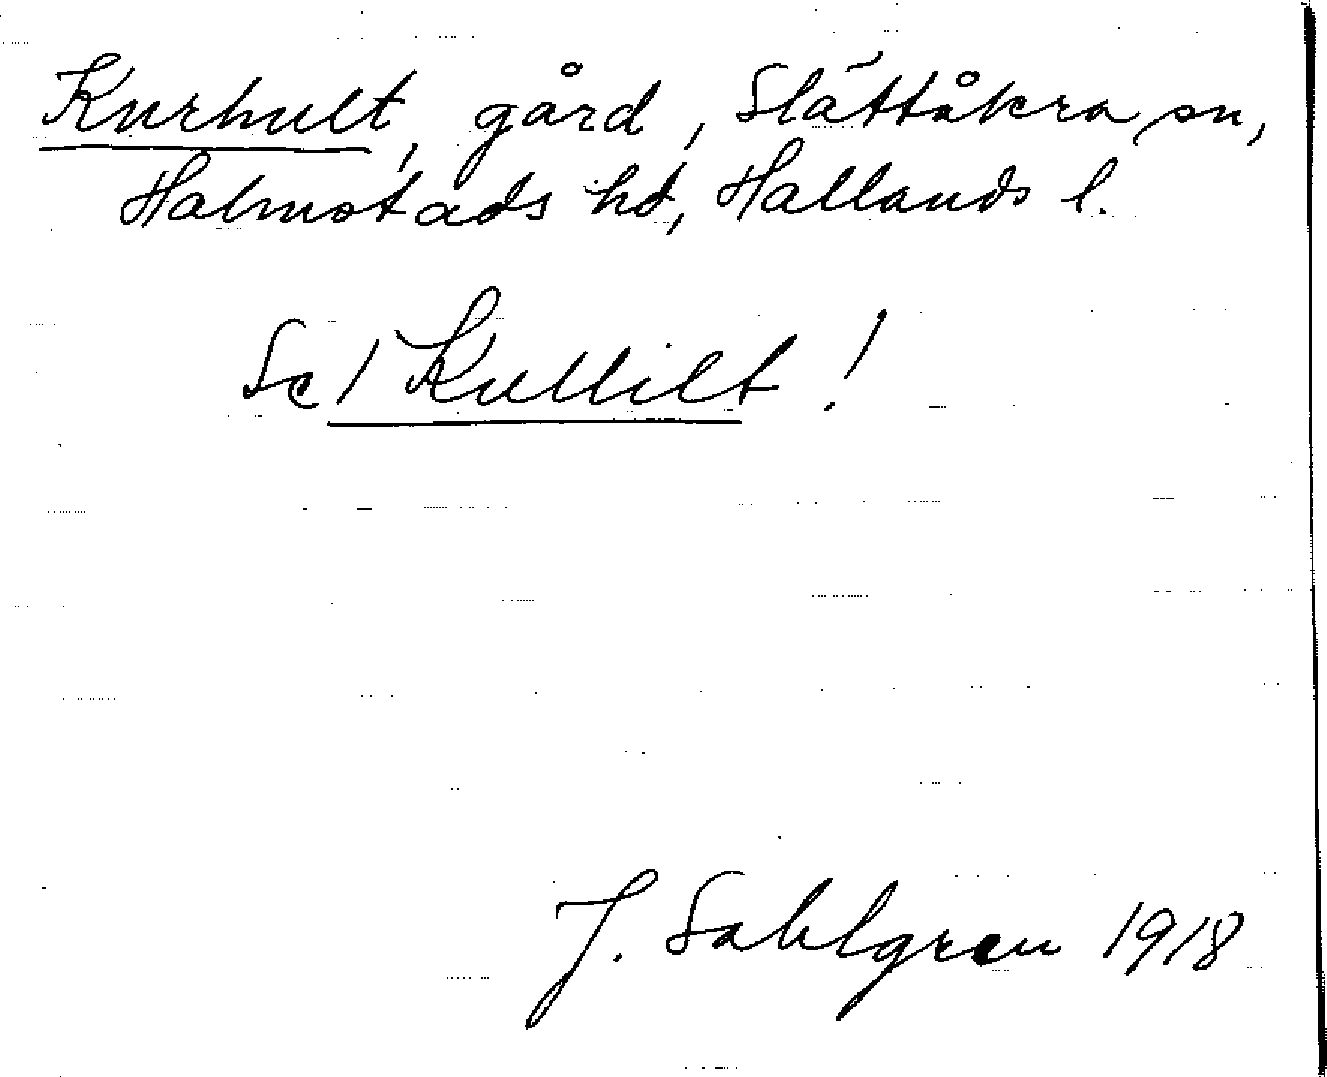 Kurhult, gård, Slättåkra sn,
Halmstads hd, Hallands l.
Se 1 Kullilt!
J. Sahlgren 1918